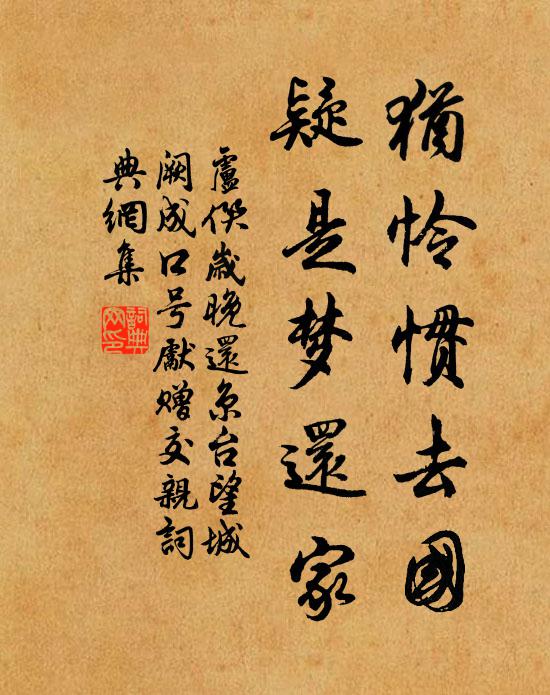 猶怜慣去國
疑是梦還家
盧僎歲晚還京台望城
闕成口号獻贈交親詞
典網集
詞典
网印